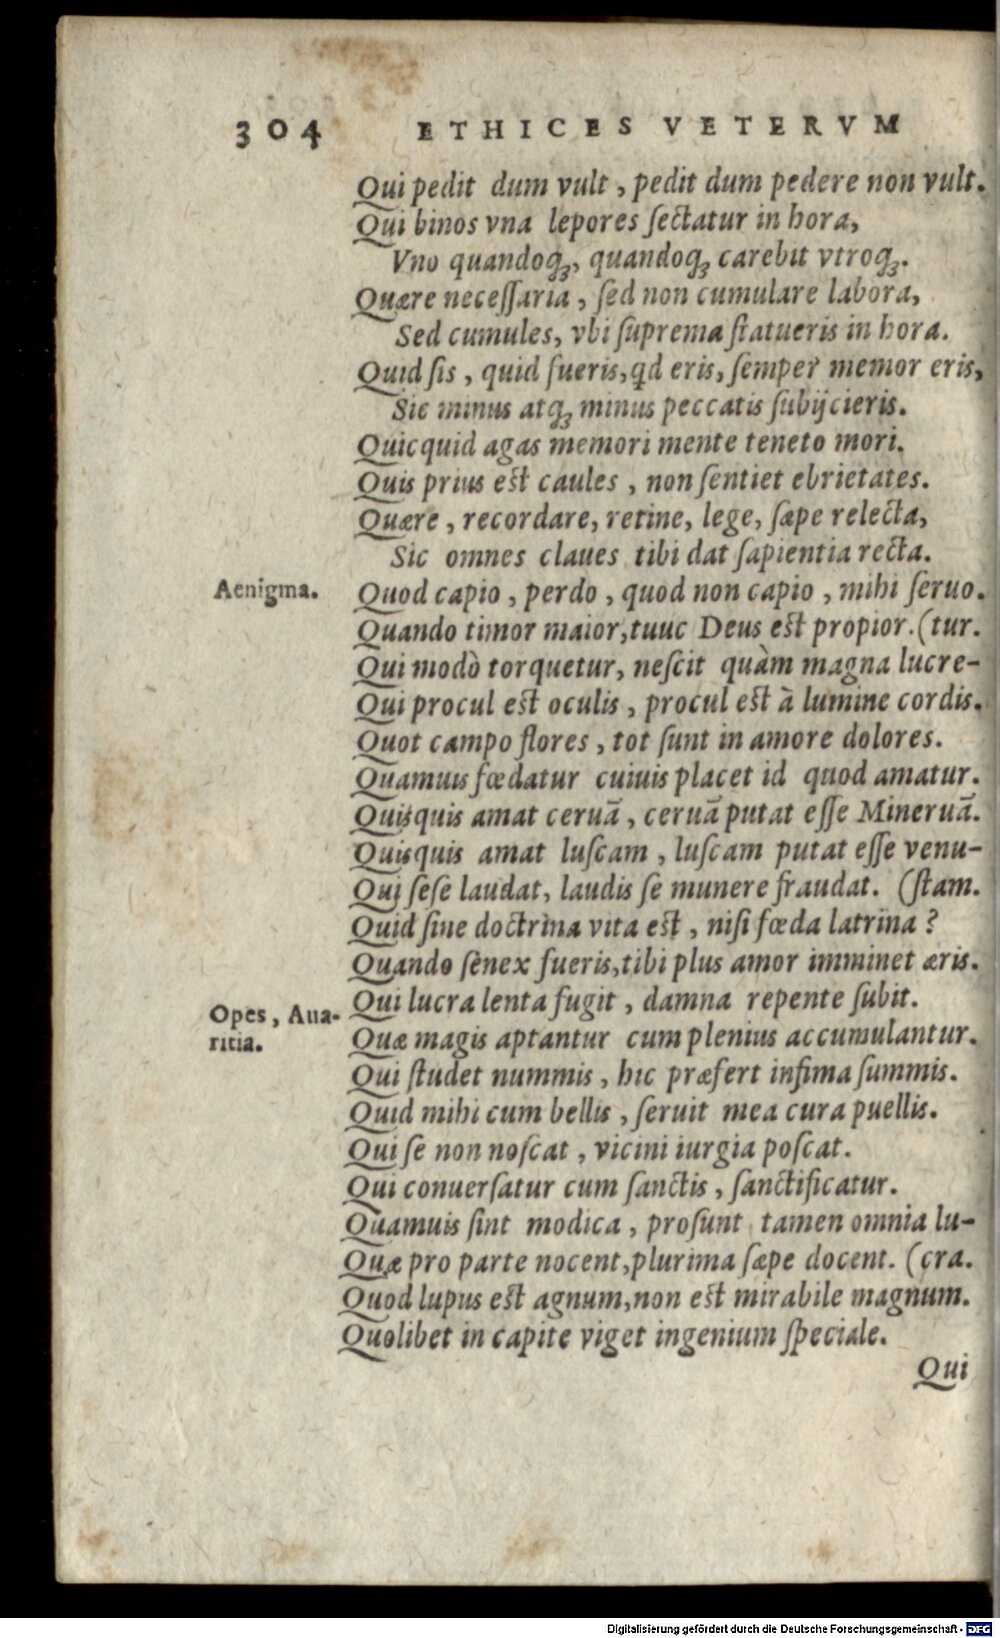 304 ETHICES VETERVM
Qui pedit dum vult, pedit dum pedere non vult.
Qui binos vna lepores ſectatur in hora,
Vno quandoqꝫ, quandoqꝫ carebit vtroqꝫ.
Quære neceſſaria, ſed non cumulare labora,
Sed cumules, vbi ſuprema ſtatueris in hora.
Quid ſis, quid fueris, qd eris, ſemper memor eris,
Sic minus atqꝫ minus peccatis ſubijcieris.
Quicquid agas memori mente teneto mori.
Quis prius est caules, non ſentiet ebrietates.
Quære, recordare, retine, lege, ſæpe relecta,
Sic omnes claues tibi dat ſapientia recta.
Aenigma. Quod capio, perdo, quod non capio, mihi ſeruo.
Quando timor maior, tuuc Deus est propior. (tur.
Qui modò torquetur, neſcit quàm magna lucre-
Qui procul est oculis, procul est à lumine cordis.
Quot campo flores, tot ſunt in amore dolores.
Quamuis fœdatur cuiuis placet id quod amatur.
Quisquis amat ceruā, ceruā putat eſſe Mineruā.
Quisquis amat luſcam, luſcam putat eſſe venu-
Qui ſeſe laudat, laudis ſe munere fraudat. (ſtam.
Quid ſine doctrina vita est, niſi fœda latrina?
Quando ſenex fueris, tibi plus amor imminet æris.
Qui lucra lenta fugit, damna repente ſubit.
Opes, Aua-
ritia. Quæ magis aptantur cum plenius accumulantur.
Qui ſtudet nummis, hic præfert infima ſummis.
Quid mihi cum bellis, ſeruit mea cura puellis.
Qui ſe non noſcat, vicini iurgia poſcat.
Qui conuerſatur cum ſanctis, ſanctificatur.
Quamuis ſint modica, proſunt tamen omnia lu-
Quæ pro parte nocent, plurima ſæpe docent. (cra.
Quod lupus est agnum, non est mirabile magnum.
Quolibet in capite viget ingenium ſpeciale.
Qui
Digitalisierung gefördert durch die Deutsche Forschungsgemeinschaft - DFG